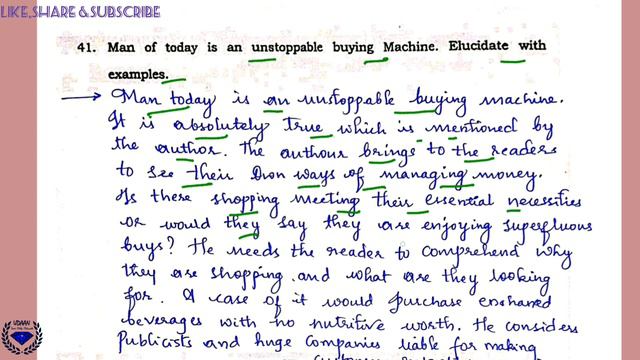 LIKE,SHARE & SUBSCRIBE
41. Man of today is an unstoppable buying Machine. Elucidate with
examples.
→ Man today is an unstoppable buying machine.
It is absolutely true which is mentioned by
the author. The authour brings to the readers
to see their own ways of managing money.
Is there shopping meeting their essential necessities
or would they say they are enjoying superfluous
buys? He needs the reader to comprehend why
they are shopping and what are they looking
for. A case of it would purchase enchanced
beverages with no nutritive worth. He considers
Publicists and huge Companies liable for making